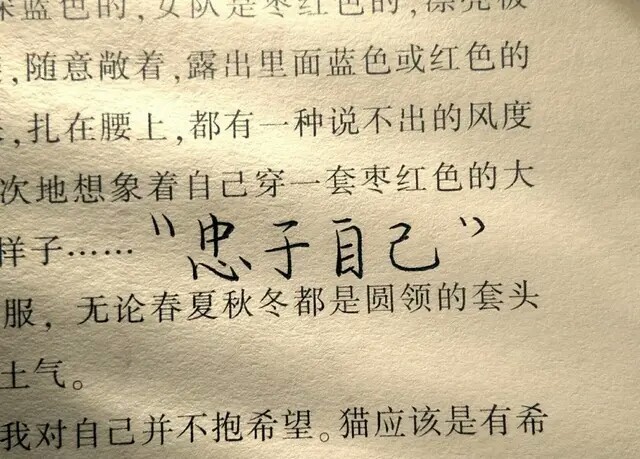 深蓝色的,女队是枣红色的,漂亮极
,随意敞着,露出里面蓝色或红色的
,扎在腰上,都有一种说不出的风度
次地想象着自己穿一套枣红色的大
样子……“忠于自己”
服, 无论春夏秋冬都是圆领的套头
土气。
我对自己并不抱希望。猫应该是有希